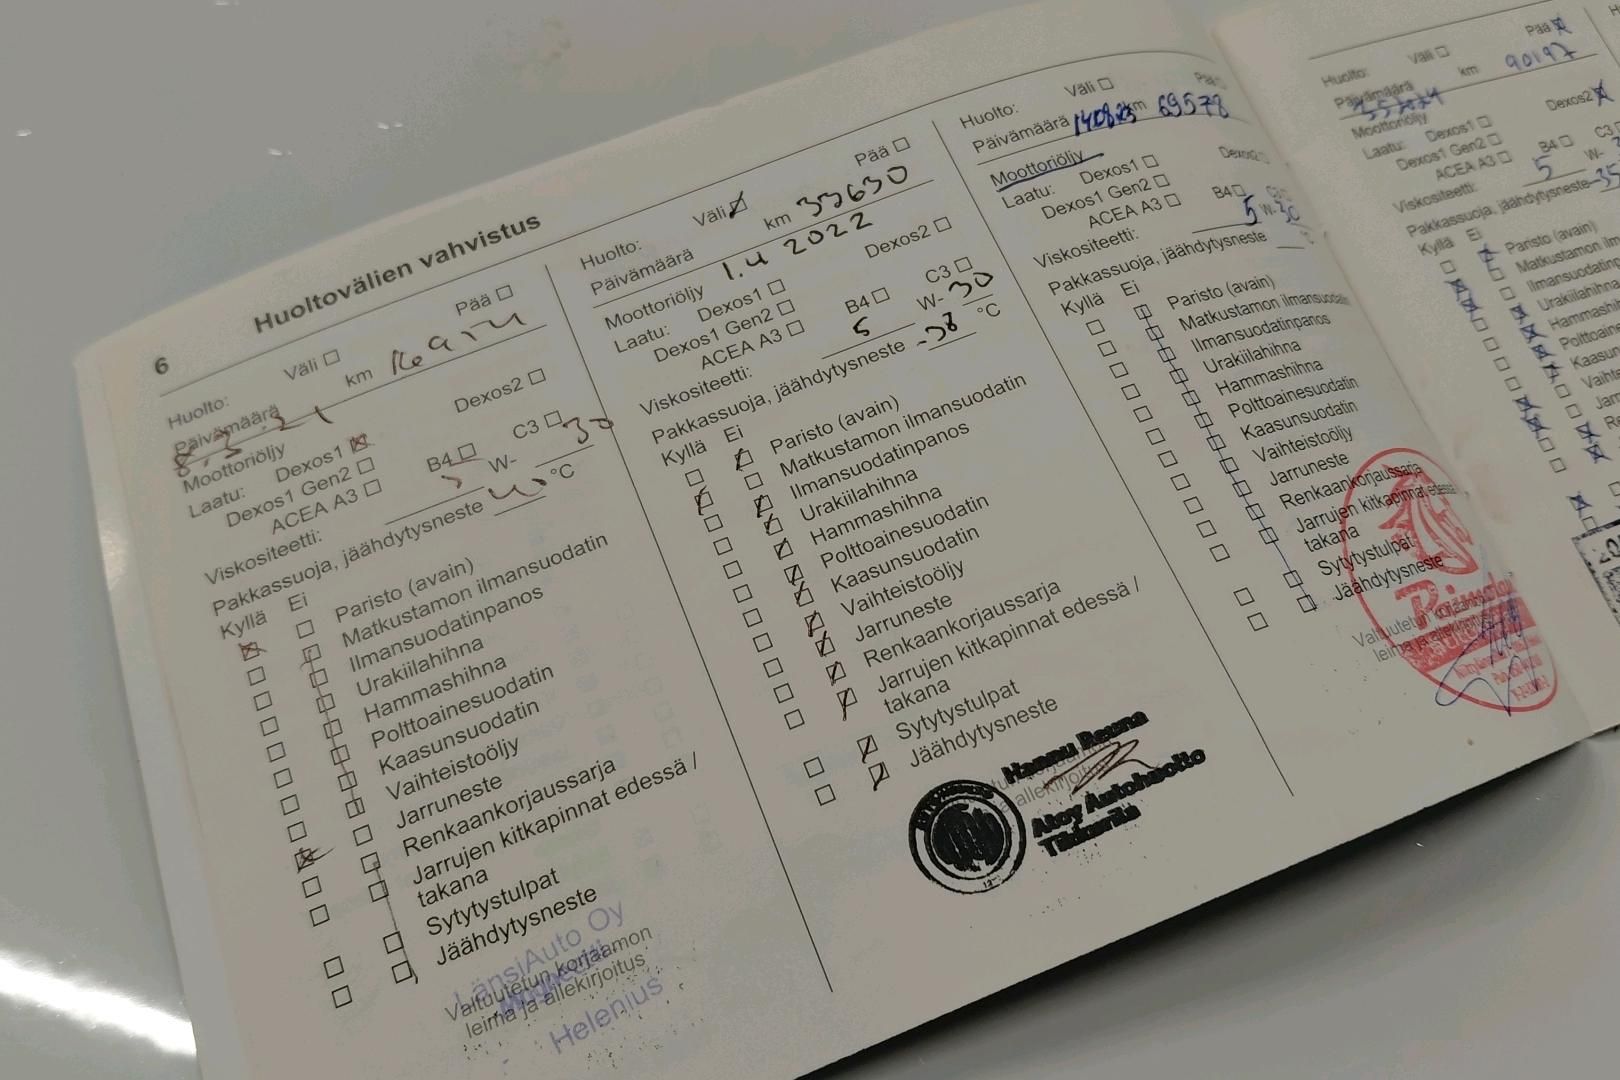 6
Huoltovälien vahvistus
Huolto: Väli Pää
Päivämäärä 8.3.21 km
Moottoriöljy
Laatu: Dexos1 Dexos2
Dexos1 Gen2
ACEA A3 B4 C3
Viskositeetti: 5 W- 30
Pakkassuoja, jäähdytysneste °C
Kyllä Ei
Paristo (avain)
Matkustamon ilmansuodatin
Ilmansuodatinpanos
Urakiilahihna
Hammashihna
Polttoainesuodatin
Kaasunsuodatin
Vaihteistoöljy
Jarruneste
Renkaankorjaussarja
Jarrujen kitkapinnat edessä /
takana
Sytytystulpat
Jäähdytysneste
LänsiAuto Oy
Valtuutetun korjaamon
leima ja allekirjoitus
Helenius
Huolto: Väli Pää
Päivämäärä 1.4 2022 km 33630
Moottoriöljy
Laatu: Dexos1 Dexos2
Dexos1 Gen2
ACEA A3 B4 C3
Viskositeetti: 5 W- 30
Pakkassuoja, jäähdytysneste -38 °C
Kyllä Ei
Paristo (avain)
Matkustamon ilmansuodatin
Ilmansuodatinpanos
Urakiilahihna
Hammashihna
Polttoainesuodatin
Kaasunsuodatin
Vaihteistoöljy
Jarruneste
Renkaankorjaussarja
Jarrujen kitkapinnat edessä /
takana
Sytytystulpat
Jäähdytysneste
Hannu Reuna
allekirjoitus
Autohuolto
Tikkurila
Huolto: Väli Pää
Päivämäärä 140823 km 69578
Moottoriöljy
Laatu: Dexos1 Dexos2
Dexos1 Gen2
ACEA A3 B4
Viskositeetti: 5 W-30
Pakkassuoja, jäähdytysneste
Kyllä Ei
Paristo (avain)
Matkustamon ilmansuodatin
Ilmansuodatinpanos
Urakiilahihna
Hammashihna
Polttoainesuodatin
Kaasunsuodatin
Vaihteistoöljy
Jarruneste
Renkaankorjaussarja
Jarrujen kitkapinnat edessä
takana
Sytytystulpat
Jäähdytysneste
Valtuutetun korjaamon
leima ja allekirjoitus
Huolto: Väli Pää
Päivämäärä km 90197
Moottoriöljy
Laatu: Dexos1 Dexos2
Dexos1 Gen2
ACEA A3 B4 C3
Viskositeetti: 5 W-
Pakkassuoja, jäähdytysneste -35
Kyllä Ei
Paristo (avain)
Matkustamon